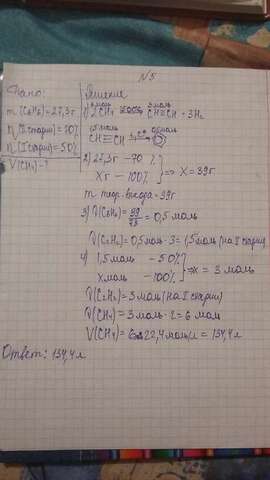 №5
Дано:
m(C₆H₆)=27,3г
η(II стадии)=70%
η(I стадии)=50%
V(CH₄)-?
Решение
1) 2CH₄ 1500° CH≡CH + 3H₂
1,5моль 0,5моль
CH≡CH
2) 27,3г - 70%
Xг - 100% ⇒ X=39г
m теор. выхода = 39г
3) ν(C₆H₆)=39/78=0,5 моль
ν(C₂H₂)=0,5моль·3=1,5моль(на II стадии)
4) 1,5моль - 50%
Xмоль - 100% ⇒ x = 3 моль
ν(C₂H₂)=3моль(на I стадии)
ν(CH₄)=3моль·2=6 моль
V(CH₄)=6·22,4моль/л=134,4л
Ответ: 134,4л